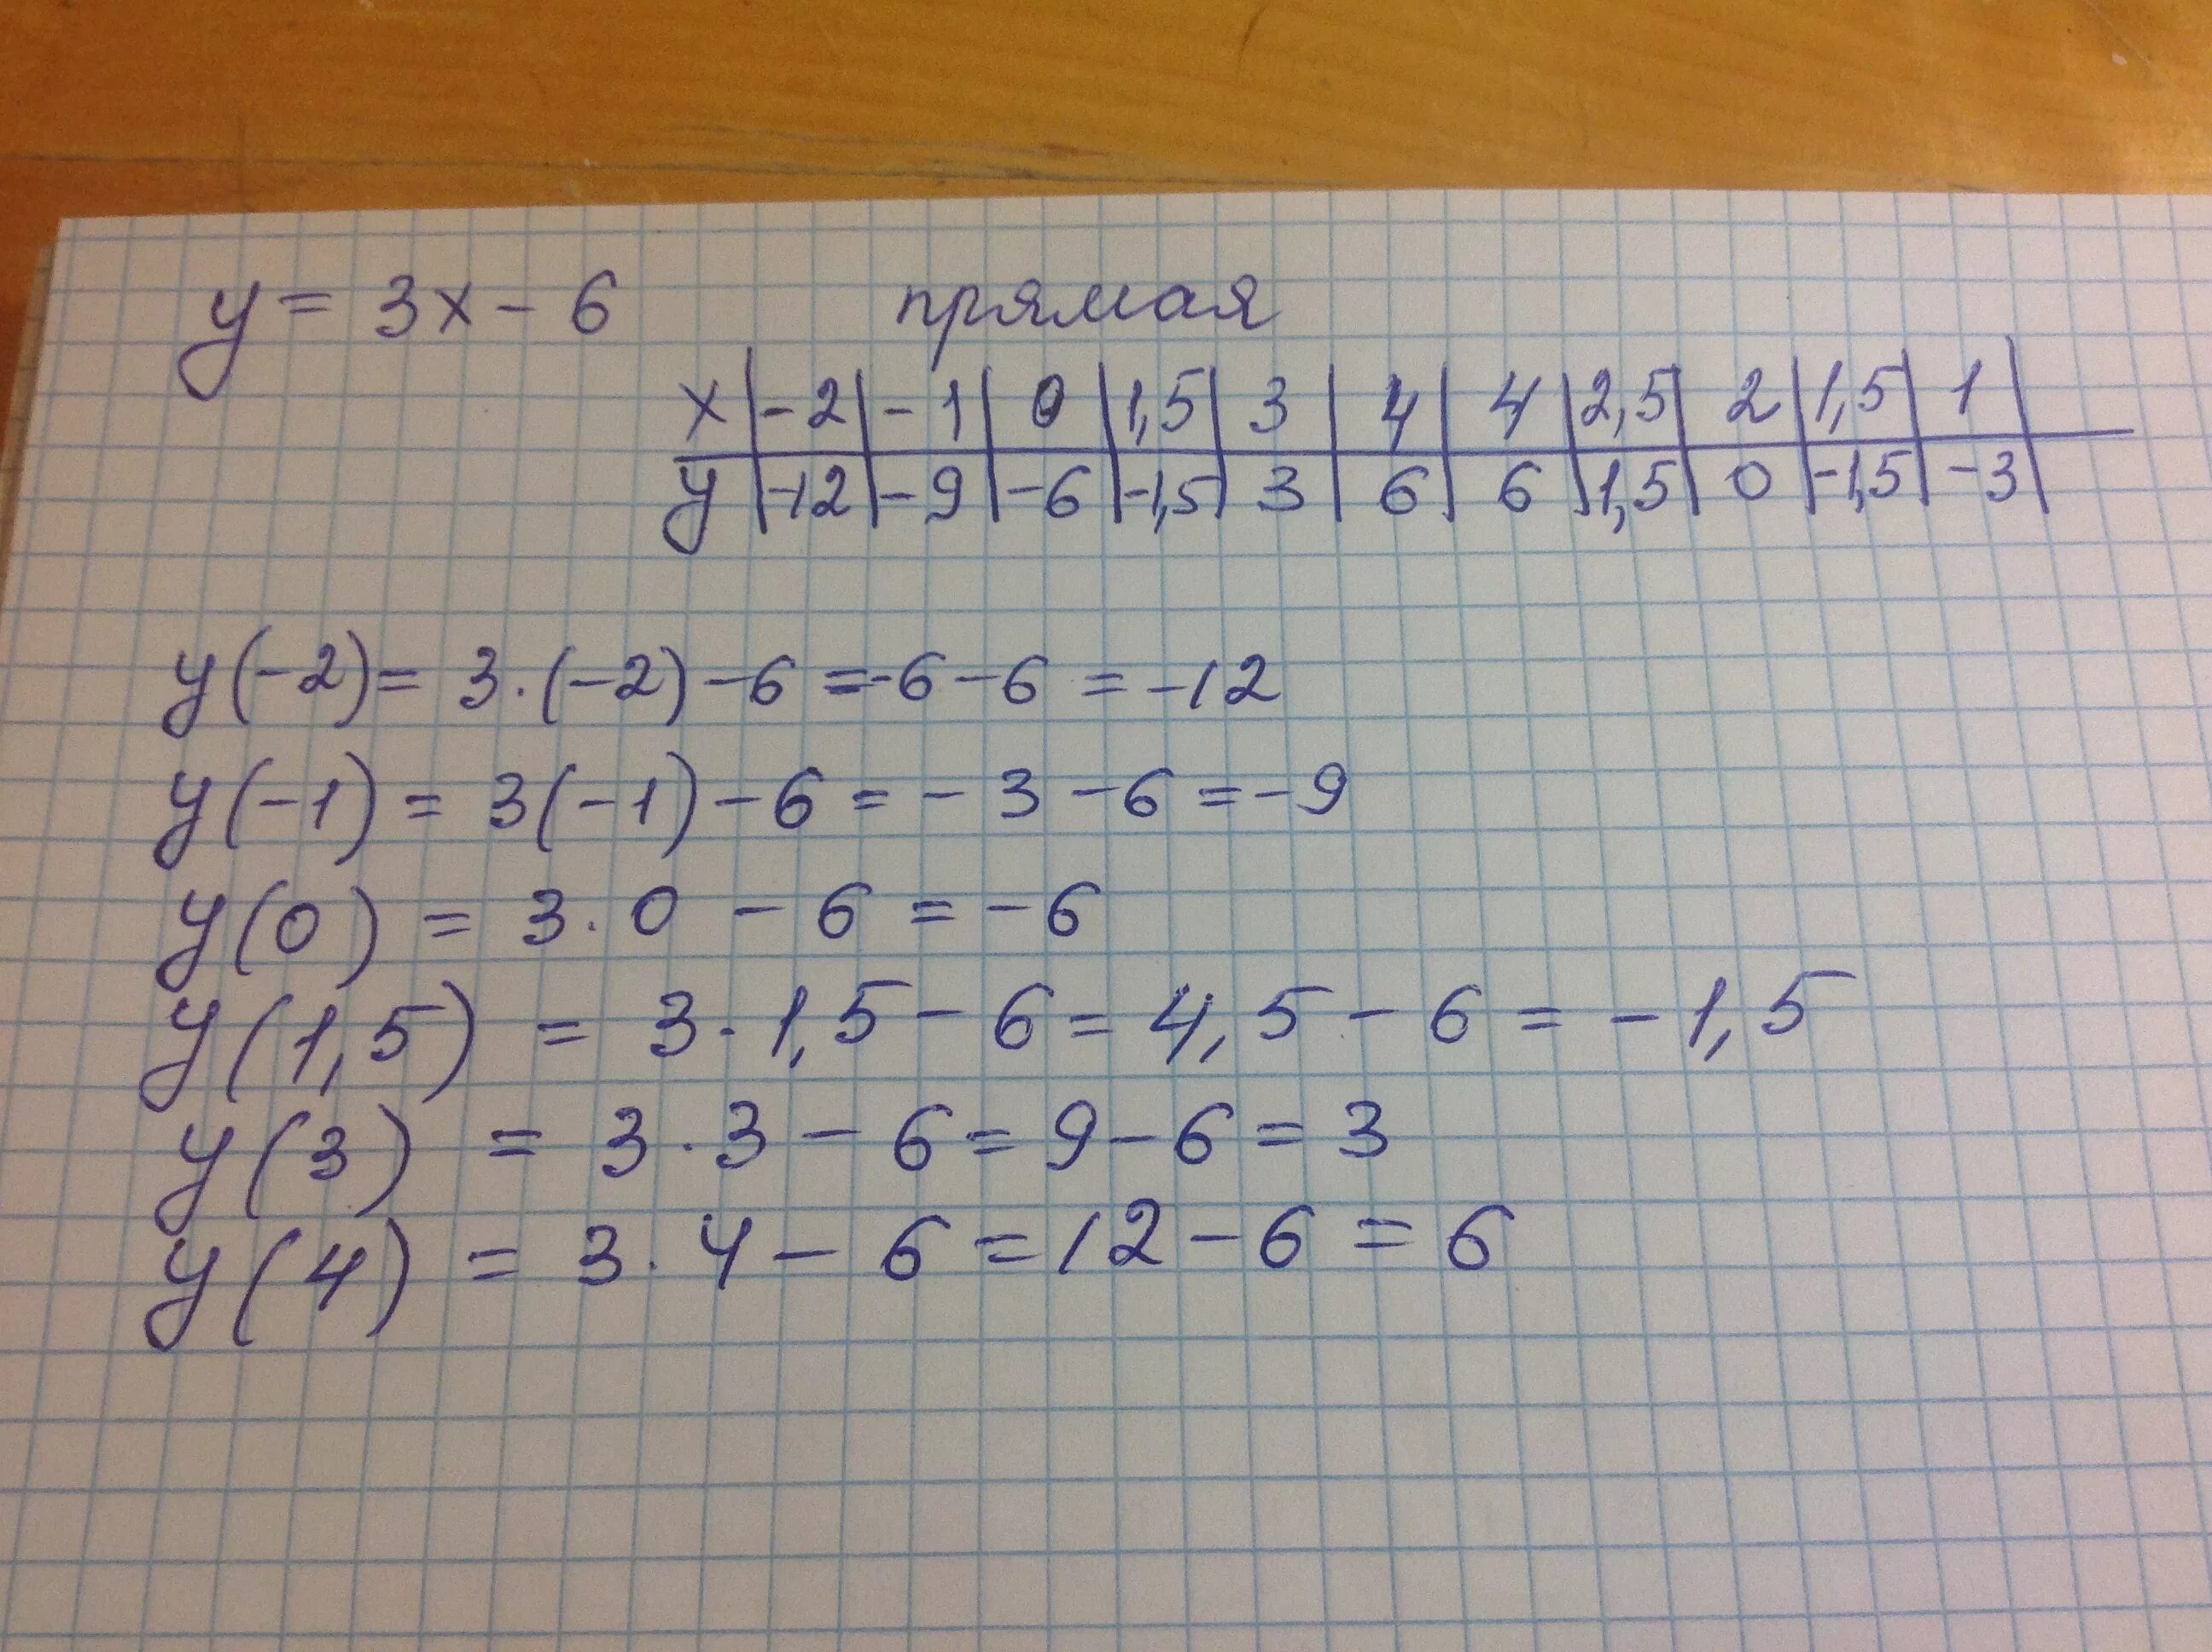 y = 3x - 6 прямая
x | -2 | -1 | 0 | 1,5 | 3 | 4 | 4 | 2,5 | 2 | 1,5 | 1 |
y | -12 | -9 | -6 | -1,5 | 3 | 6 | 6 | 1,5 | 0 | -1,5 | -3 |
y(-2) = 3·(-2) - 6 = -6 - 6 = -12
y(-1) = 3(-1) - 6 = -3 - 6 = -9
y(0) = 3·0 - 6 = -6
y(1,5) = 3·1,5 - 6 = 4,5 - 6 = -1,5
y(3) = 3·3 - 6 = 9 - 6 = 3
y(4) = 3·4 - 6 = 12 - 6 = 6